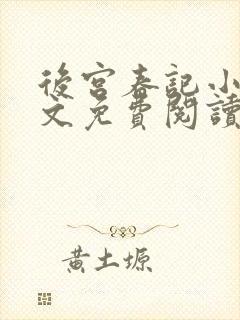 後宮春記小
文免費閱讀
黃土塬